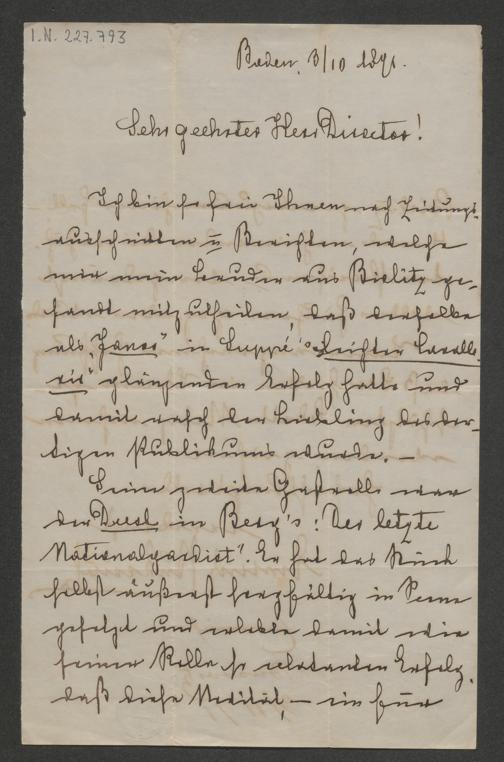 I.N. 227.793
Baden, 3/10 1891.
Sehr geehrter Herr Director!
Ich bin so frei Ihnen nach Zeitungs-
ausschnitten u Berichten, welche
mir mein Bruder aus Bielitz ge-
sandt mitzutheilen, daß derselbe
als „Janos" in Suppé's „Leichter Cavalle-
rie" glänzenden Erfolg hatte und
damit rasch der Liebling des dor-
tigen Publikums wurde. —
Seine zweite Gastrolle war
der Dusl in Berg's: Der letzte
Nationalgardist". Er hat das Stück
selbst äußerst sorgfältig in Scene
gesetzt und erlebte damit wie
seiner Rolle so eclatanten Erfolg,
daß diese Novität, — ein für